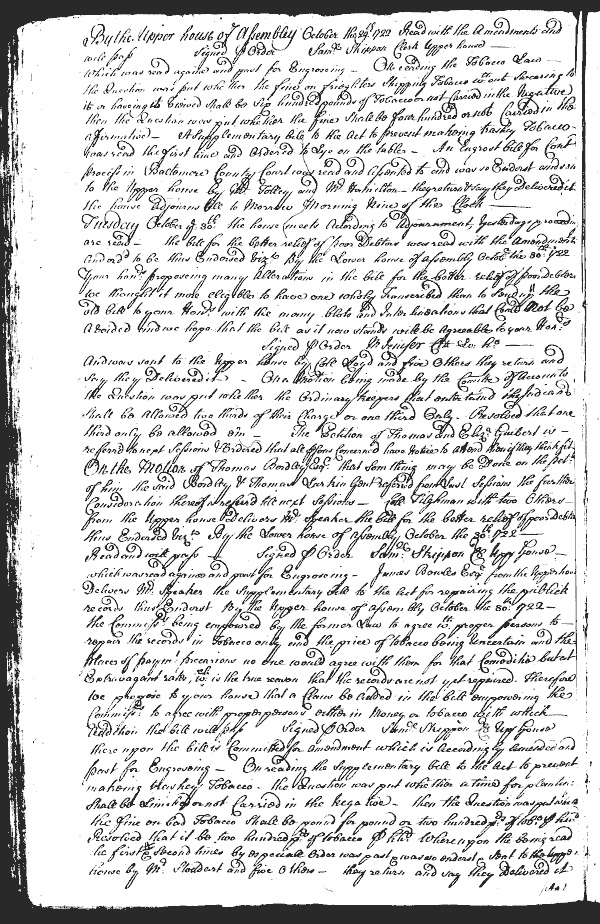 By the Upper house of Assembly October the 29th 1722 Read with the Amendments and
will pass Signed P Order Saml Skippon Clerk Upper house
which was read againe and past for Engrossing - On reading the Tobacco Law
the Question was put whether the fine on freighters Shipping Tobacco wthout Swearing to
it or having it Viewed Shall be Six hundred pounds of Tobacco or not carried in the Negative
then the Question was put whether the fine Shall be four hundred or not Carried in the
affirmative - A Supplementary bill to the Act to prevent making trashy Tobacco
was read the first time and Ordered to Lye on the table - An Engrost bill for Contg
Process in Baltemore County Court was read and assented to and was so Endorst and sent
to the Upper house by Mr Tolley and Mr Hamilton - they return & say they Delivered it
the house adjourns till to Morrow Morning Nine of the Clock
Tuesday October ye 30th the house meets According to Adjournment, Yesterdays proceedings
are read - the bill for the better relief of poor Debtors was read with the Amendments
and ordd to be thus Endorsed Vizt By the Lower house of Assembly Octobr the 30th 1722
Your honrs proposeing many Alterations in the bill for the better relief of poor Debtors
we thought it more eligible to have one wholy Transcribed than to Send up the
old bill to your Honrs with the many blots and Interlineations that Could Not be
avoided and we hope that the bill as it now stands will be Agreeable to your Honrs
Signed P Order M Jenifer Clk Lo. ho.
And was sent to the Upper house by Coll Loyd and five Others they return and
say they Delivered it - On a Motion being made by the Comittee of Accounts
the Question was put whether the Ordinary keepers that entertaind the Indians
Shall be allowed two thirds of their Charge or one third Only - Resolved that one
third only be allowed em - The Petition of Thomas and Eliza Guibert is
referrd to next Sessions & Ordered that all psons Concerned have Notice to attend then if they think fit
On the Motion of Thomas Bordley Esqr that something may be Done on the Petn
of him the said Bordley & Thomas Larkin Gent referred from Last Sessions the further
Consideration thereof is referrd till next Sessions - Coll Tilghman with two Others
from the Upper house Delivers Mr Speaker the bill for the better relief of poor Debtors
thus Endorsed Vizt By the Lower house of Assembly October the 30th 1722
Read and will pass - Signed P Order Saml Skippon Cl Uppr house
which was read againe and past for Engrossing - James Bowles Esqr from the Upper house
Delivers Mr Speaker the Supplementary bill to the Act for repairing the publick
records thus Endorst By the Upper house of Assembly October the 30th 1722
the Commissrs being empowred by the former Law to agree wth proper persons to
repair the records in Tobacco only and the price of tobacco being Uncertain and the
places of paymt precarious no one would agree with them for that Comoditie but at
Extravagant rate, wch is the true reason that the records are not yet repaired. Therefore
we propose to your house that a Claus be added in the bill empowering the
Commissrs to agree with proper persons either in Money or tobacco with which
Addition the bill will pass Signed P Order Saml Skippon Cl Uppr house
there upon the bill is Committed for amendment which is Accordingly amended and
past for Engrossing - On reading the Supplementary bill to the Act to prevent
making trashey Tobacco - the Question was put whether a time for planting
Shall be Limited or not Carried in the Negative - then the Question was put whether
the fine on bad Tobacco Shall be pound for pound or two hundred pds of tobo P hhd
Resolved that it be two hundred pds of tobacco P hhd Whereupon the being read
the first & Second times by especiale Order was past & was so endorst & Sent to the upper
house by Mr Stoddert and five Others - they return and say they Delivered it